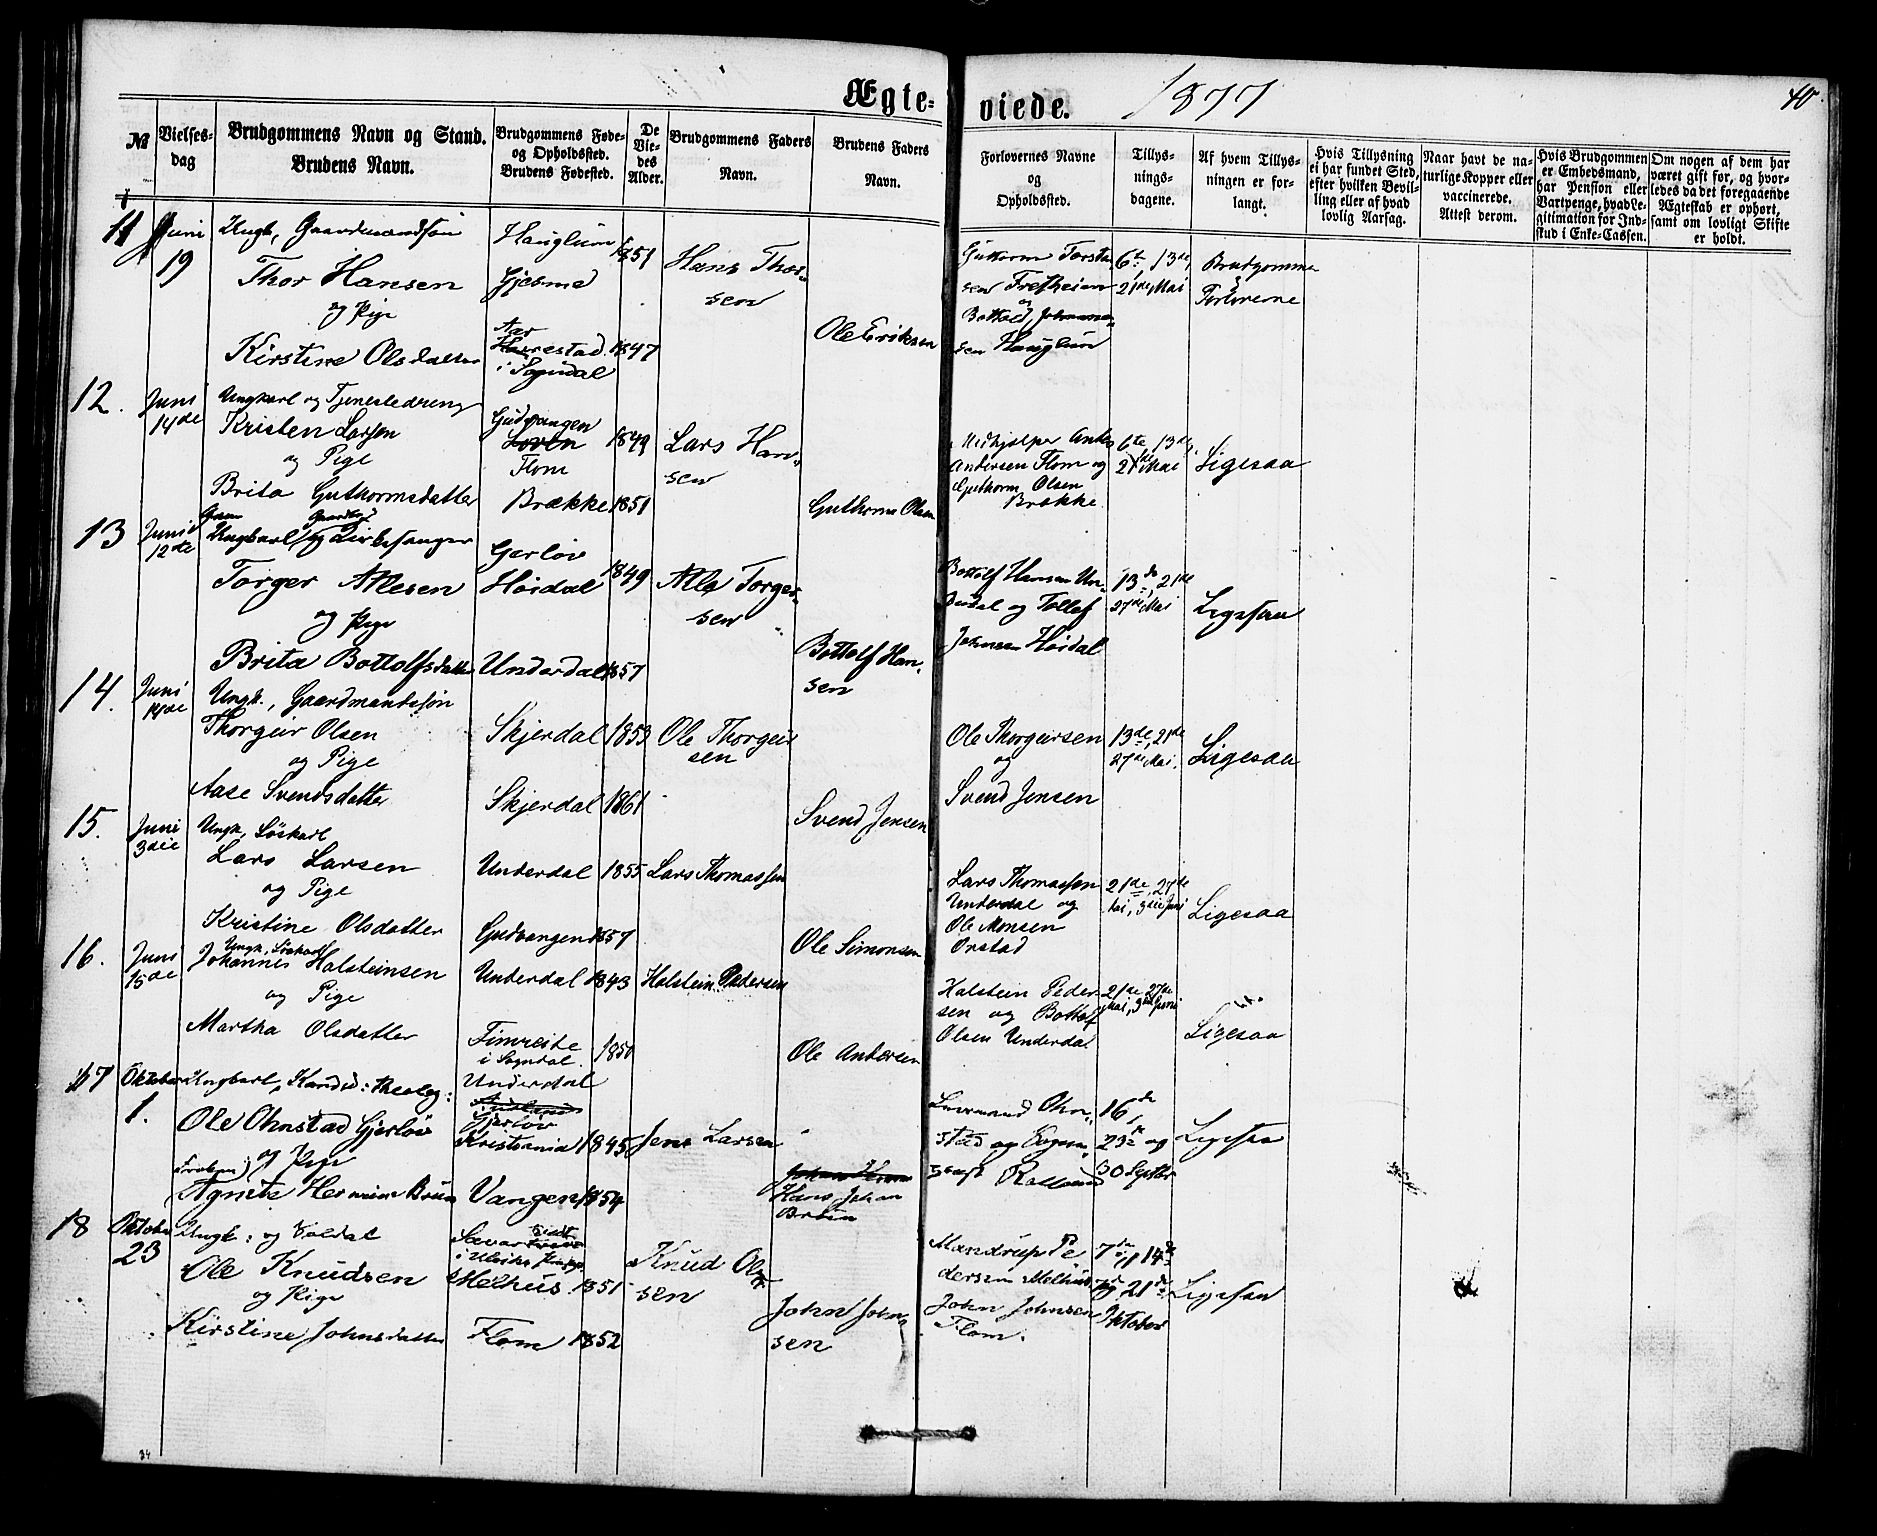 Ægte-
viede.
1877
40.
№
Vielses-
dag
Brudgommens Navn og Stand.
Brudens Navn.
Brudgommens Føde-
og Opholdssted.
Brudens Fødested.
De
Vie-
des
Alder.
Brudgommens Faders
Navn.
Brudens Faders
Navn.
Forlovernes Navne
og
Opholdssted.
Tillys-
nings-
dagene.
Af hvem Tillys-
ningen er for-
langt.
Hvis Tillysning
ei har fundet Sted,
efter hvilken Bevil-
ling eller af hvad
lovlig Aarsag.
Naar havt de na-
turlige Kopper eller
vaccinerede.
Attest derom.
Hvis Brudgommen
er Embedsmand,
har Pension eller
Vartpenge, hvad Le-
gitimation for Ind-
skud i Enke-Cassen.
Om nogen af dem har
været gift for, og hvor-
ledes da det foregaaende
Ægteskab er ophørt,
samt om lovligt Skifte
er holdt.
11
Juni
19
Ungk, Gaardmandssøn
Thor Hansen
og Pige
Kirstine Olsdatter
Hauglum
Gjesme
Aar
restad
i Sogndal
1851
1847
Hans Thor-
sen
Ole Eriksen
Guttorm Torste
sen Fretheim
og
Bottolf Johannes
sen Hauglum
6te, 13de,
21de Mai
Brudgomme
&
Forloverne
12.
Juni
14de
Ungkarl og Tjenestedreng
Kristen Larsen
og Pige
Brita Guthormsdatter
Gudvangen
Flom
Brække
1849
1851
Lars Han-
sen
Guthorm Olsen
Medhjælper Anders
Andersen Flom og
Guthorm Olsen
Brække
6te 13de,
21de Mai
Ligesaa
13
Juni
12te
Ungkarl og Kirkesanger
Torger Atlesen
og Pige
Brita Bottolfsdatter
Gjerløv
Høidal
Underdal
1849
1857
Atle Torger-
sen
Bottolf Han-
sen
Bottolf Hansen Un-
derdal og Tollef
Johnsen Høidal
13de, 21de
27de Mai
Ligesaa
14.
Juni
14de
Ungk., Gaardmandssøn
Thorgeir Olsen
og Pige
Aase Svendsdatter
Skjerdal
Skjerdal
1853
1861
Ole Thorgeir
sen
Svend Jensen
Ole Thorgeirsen
og
Svend Jensen
13de, 21de
27de Mai.
Ligesaa
15.
Juni
3die
Ungk, Løskarl
Lars Larsen
og Pige
Kristine Olsdatter
Underdal
Gudvangen
1855
1857
Lars Thomassen
Ole Simonsen
Lars Thomassen
Underdal og
Ole Monsen
Orstad
21de, 27de
Mai, 3die Juni
Ligesaa
16.
Juni
15de
Ungk, Løskarl
Johannes Halsteinsen
og Pige
Martha Olsdatter
Underdal
Fimreite
i Sogndal.
1843
1850
Halstein Pedersen
Ole Andersen
Halstein Peder-
sen og Bottolf
Olsen Underdal
21de 27de
Mai, 3die Juni
Ligesaa
17
Oktober
1.
Ungkarl, Kandid: theolog:
Ole Ohnstad Gjerløv
og Pige
Agnete Hermine Bruun
Underdal
Gjerløv
Kristiania
Vangen
1845
1854
Jens Larsen
Hans Johan
Bruun
Lensmand Ohn-
stad og
16de,
23de og
30 Septbr
Ligesaa
18
Oktober
23
Ungk: og Soldat
Ole Knudsen
og Pige
Kirstine Johnsdatter
Melhus
Flom
1851
1852
Knud Ol-
sen
John John-
sen
Mandrup Pe
dersen Melhus
John Johnsen
Flom.
7de, 14de
og 21de
Oktober
Ligesaa
84